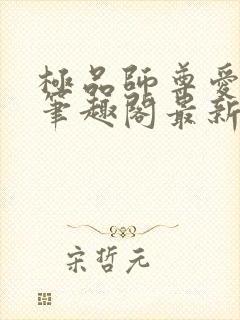 極品師尊愛
筆趣閣最新
宋哲元